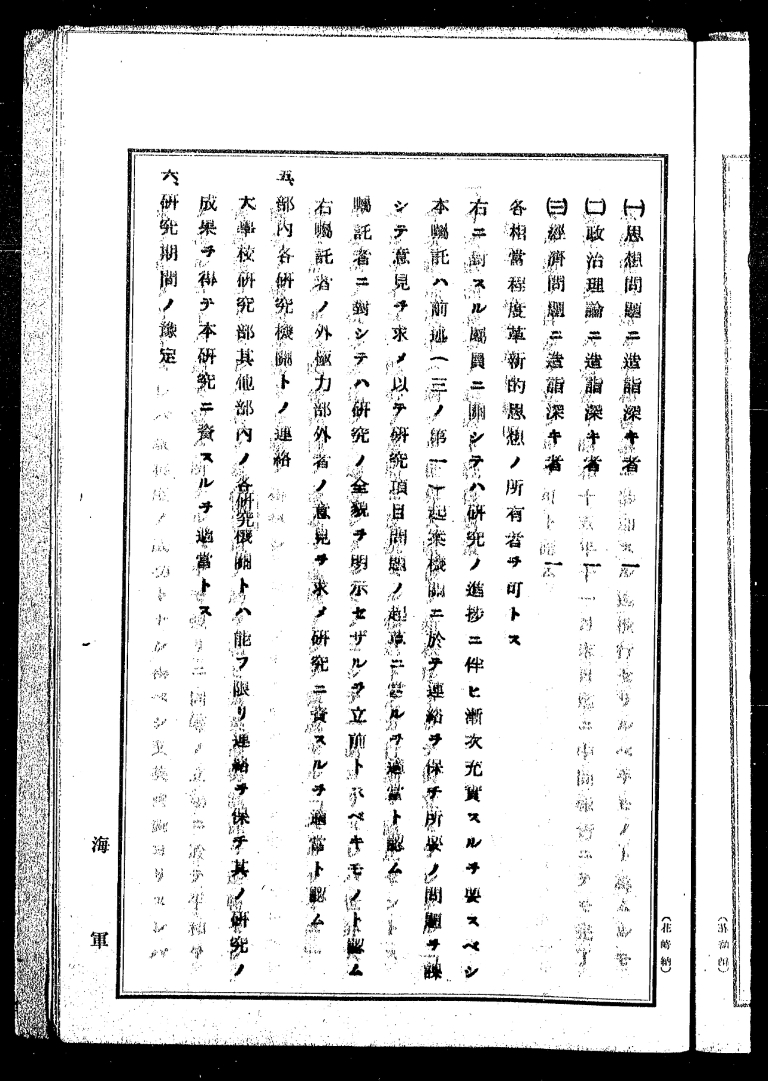 ㈠思想問題ニ造詣深キ者　一
㈡政治理論ニ造詣深キ者　一
㈢經濟問題ニ造詣深キ者　一
各相當程度革新的思想ノ所有者ヲ可トス
右ニ對スル囑員ニ關シテハ研究ノ進捗ニ伴ヒ漸次充實スルヲ要スベシ
本囑託ハ前述（三ノ第一）起案機關ニ於テ連絡ヲ保チ所要ノ問題ヲ課
シテ意見ヲ求メ以テ研究項目問題ノ起草ニ當ルヲ適當ト認ム
囑託者ニ對シテハ研究ノ全貌ヲ明示セザルヲ立前トスベキモノト認ム
右囑託者ノ外極力部外者ノ意見ヲ求メ研究ニ資スルヲ適當ト認ム
五、部内各研究機關トノ連絡
大學校研究部其他部内ノ各研究機關トハ能フ限リ連絡ヲ保チ其ノ研究ノ
成果ヲ得テ本研究ニ資スルヲ適當トス
六、研究期間ノ豫定
海軍